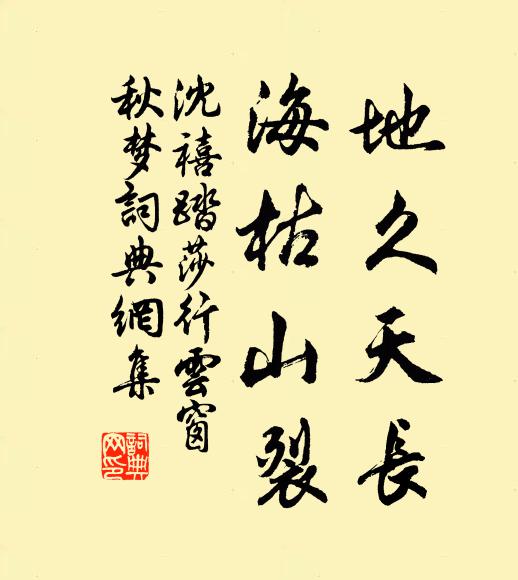 地久天長
海枯山裂
沈禧踏莎行雲窗
秋梦詞典網集
詞典
网印